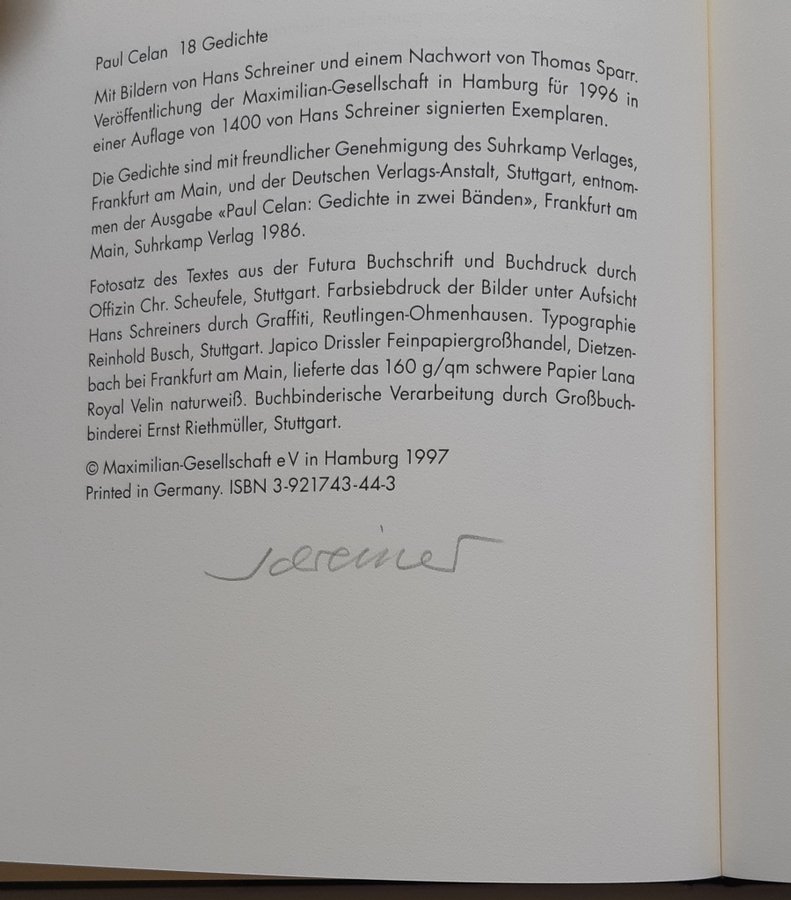 Paul Celan 18 Gedichte
Mit Bildern von Hans Schreiner und einem Nachwort von Thomas Sparr.
Veröffentlichung der Maximilian-Gesellschaft in Hamburg für 1996 in
einer Auflage von 1400 von Hans Schreiner signierten Exemplaren.
Die Gedichte sind mit freundlicher Genehmigung des Suhrkamp Verlages,
Frankfurt am Main, und der Deutschen Verlags-Anstalt, Stuttgart, entnom-
men der Ausgabe «Paul Celan: Gedichte in zwei Bänden», Frankfurt am
Main, Suhrkamp Verlag 1986.
Fotosatz des Textes aus der Futura Buchschrift und Buchdruck durch
Offizin Chr. Scheufele, Stuttgart. Farbsiebdruck der Bilder unter Aufsicht
Hans Schreiners durch Graffiti, Reutlingen-Ohmenhausen. Typographie
Reinhold Busch, Stuttgart. Japico Drissler Feinpapiergroßhandel, Dietzen-
bach bei Frankfurt am Main, lieferte das 160 g/qm schwere Papier Lana
Royal Velin naturweiß. Buchbinderische Verarbeitung durch Großbuch-
binderei Ernst Riethmüller, Stuttgart.
© Maximilian-Gesellschaft e V in Hamburg 1997
Printed in Germany. ISBN 3-921743-44-3
Schreiner